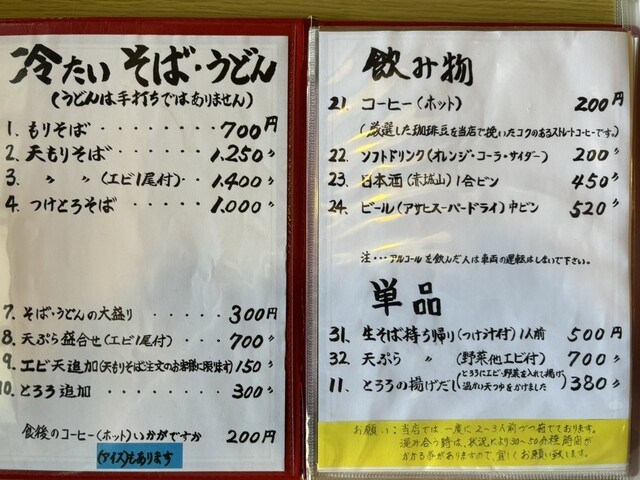 冷たい そば・うどん
(うどんは手打ちではありません)
1. もりそば ・・・・・・・ 700円
2. 天もりそば ・・・・・・ 1.250〃
3. 〃 〃 (エビ1尾付) ・・・ 1.400〃
4. つけとろそば ・・・・・ 1.000〃
7. そば・うどんの大盛り 300円
8. 天ぷら盛合せ(エビ1尾付) 700〃
9. エビ天追加(天もりそば注文のお客様に限ります) 150〃
10. とろろ追加 300〃
食後のコーヒー(ホット)いかがですか 200円
(アイス)もあります
飲み物
21. コーヒー(ホット) 200円
(厳選した珈琲豆を当店で挽いたコクのあるストレートコーヒーです。)
22. ソフトドリンク(オレンジ・コーラ・サイダー) 200〃
23. 日本酒(赤城山)1合ビン 450〃
24. ビール(アサヒスーパードライ)中ビン 520〃
注・・・アルコールを飲んだ人は車両の運転はしないで下さい。
単品
31. 生そば持ち帰り(つけ汁付)1人前 500円
32. 天ぷら 〃 (野菜他エビ付) 700〃
11. とろろの揚げだし(とろろにエビ・野菜を入れて揚げ、温かい天つゆをかけました) 380〃
お願い:当店では一度に2〜3人前づつ茹でております。
混み合う時は、状況により30〜50分程時間が
かかる事がありますので、宜しくお願い致します。